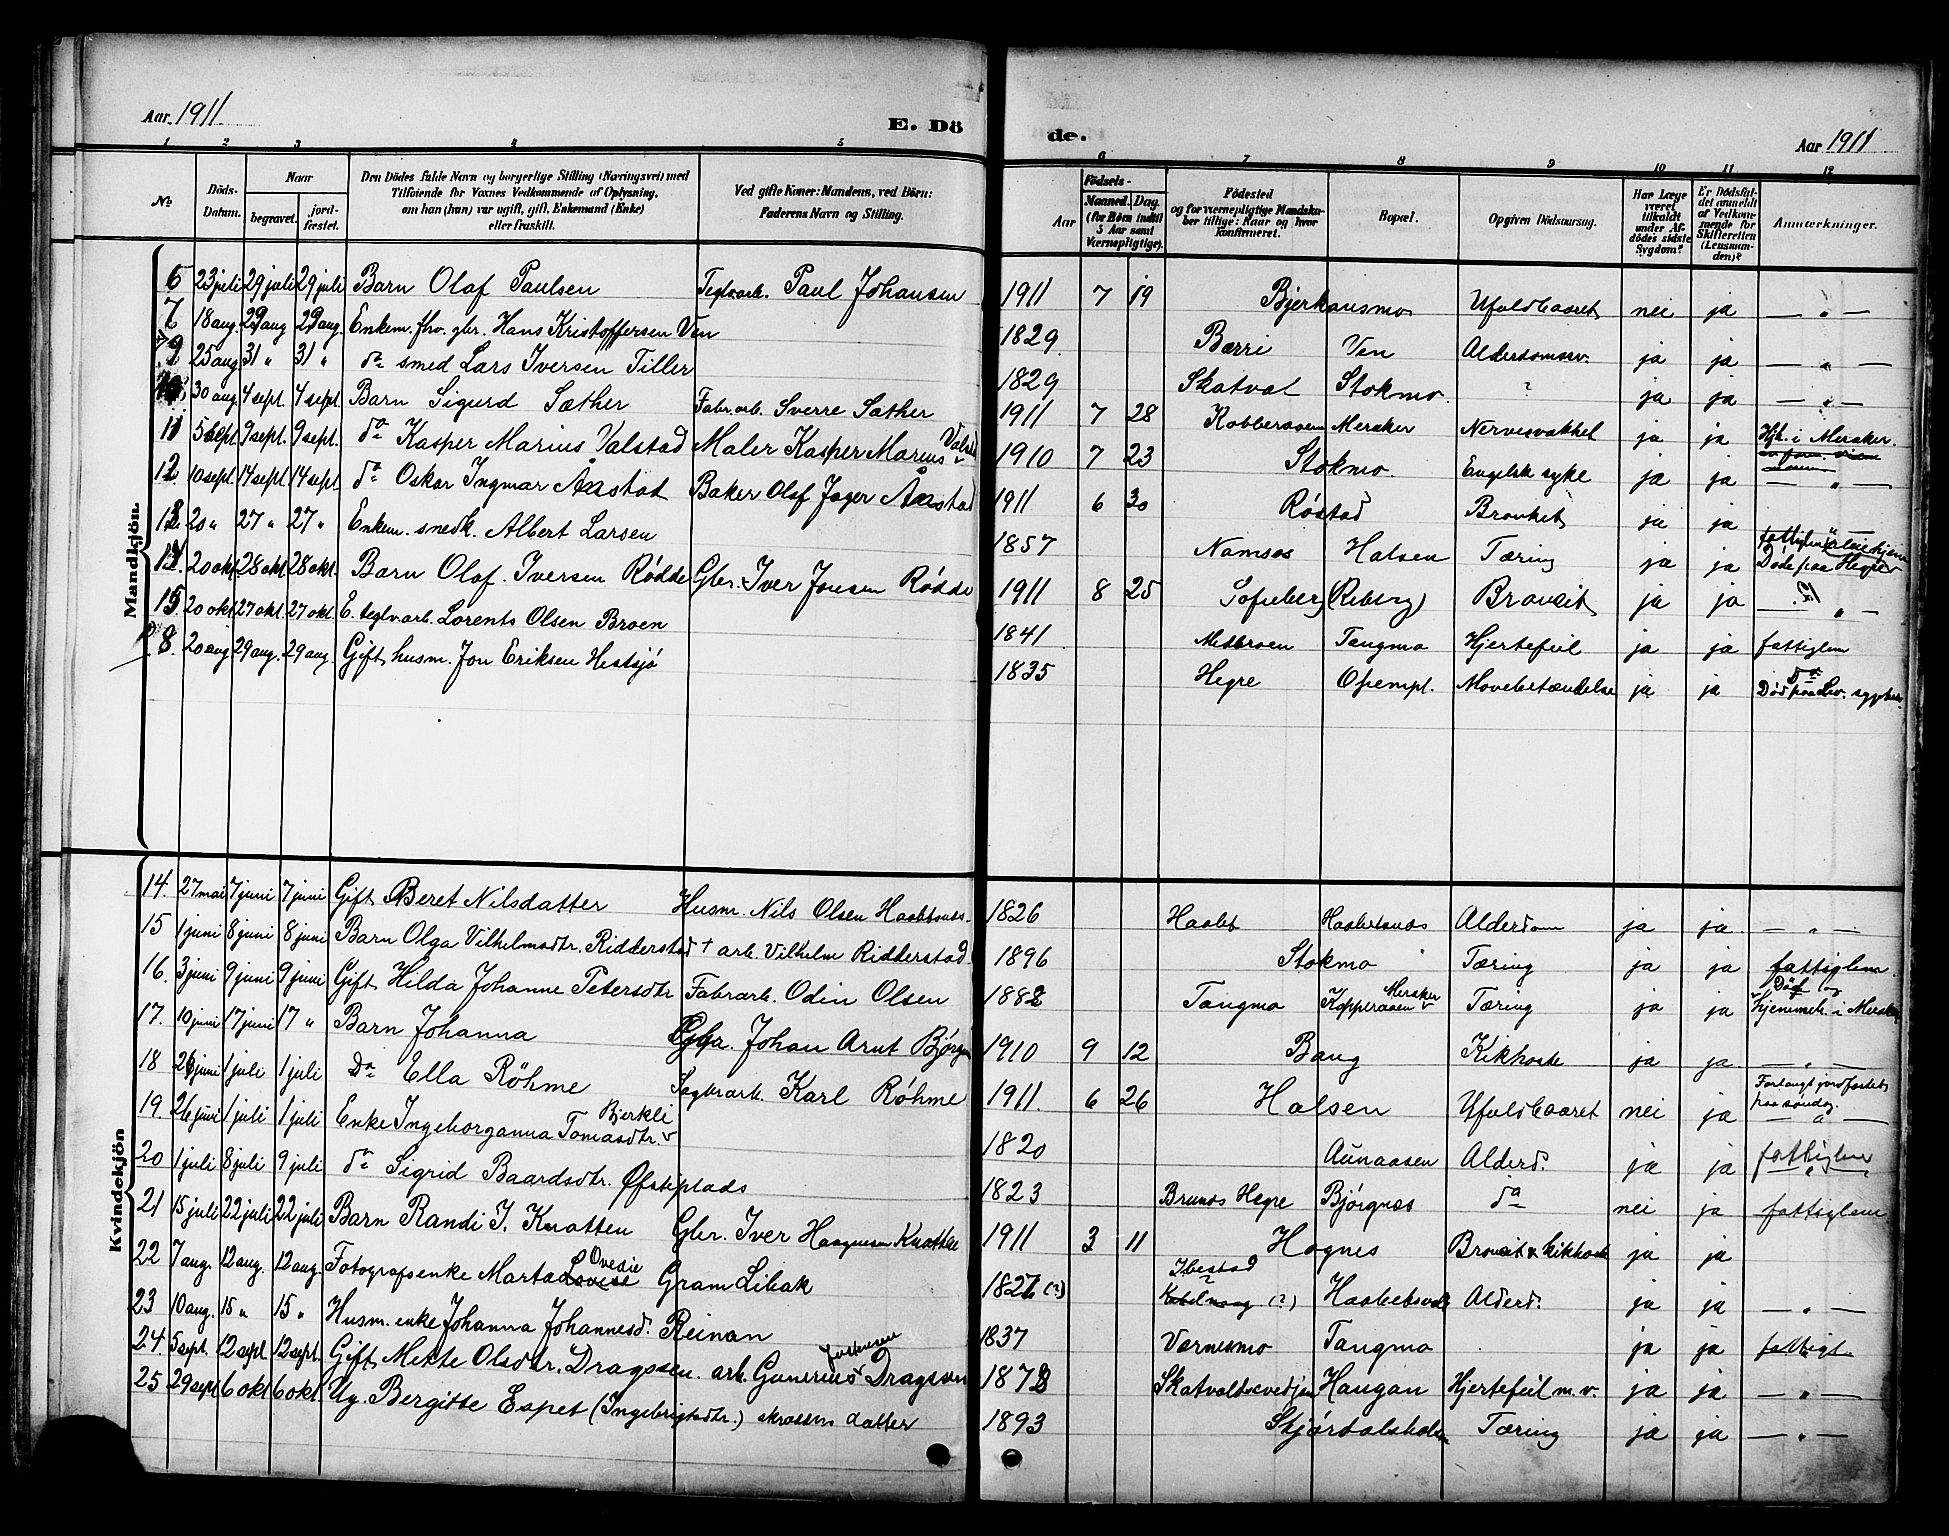 Aar 1911
E. Dö
de.
Aar 1911
1 2 3 4 5 6 7 8 9 10 11 12
№
Döds-Datum.
Naar
begravet.
jord-fæstet.
Den Dödes fulde Navn og borgerlige Stilling (Næringsvei) med
Tilföiende for Voxnes Vedkommende af Oplysning,
om han (hun) var ugift, gift, Enkemand (Enke)
eller fraskilt.
Ved gifte Koner: Mandens, ved Börn:
Faderens Navn og Stilling.
Aar
Födsels-
Maaned. Dag.
(for Börn indtil
5 Aar samt
Værnepligtige).
Födested
og for værnepligtige Mandska-
ber tillige: Naar og hvor
konfirmeret.
Bopæl.
Opgiven Dödsaarsag.
Har Læge
været
tilkaldt
under Af-
dödes sidste
Sygdom?
Er Dödsfal-
det anmeldt
af Vedkom-
mende for
Skifteretten
(Lensman-
den)?
Anmærkninger.
Mandkjön
6 23 juli 29 juli 29 juli Barn Olaf Paulsen Teglv.arb. Paul Johansen 1911 7 19 Bjerkansmo Ufuldbaaret nei ja — " —
7 18 aug. 29 aug 29 aug. Enkem. fhv. gbr. Hans Kristoffersen Ven 1829 Barri Ven Alderdomssv. ja ja — " —
9 25 aug 31 " 31 " do smed Lars Iversen Tiller 1829 Skatval Stokmo ? ja ja — " —
10 30 aug. 4 sept. 4 sept. Barn Sigurd Sæther Fabr.arb. Sverre Sæther 1911 7 28 Kobberaaen Meraker Nervesvækket ja ja Hjd. i Meraker.
11 5 sept. 9 sept. 9 sept. do Kasper Marius Valstad Maler Kasper Marius Valstad 1910 7 23 Stokmo Engelsk syke ja ja — " —
12 10 sept. 14 sept 14 sept. do Oskar Ingmar Aastad Baker Olaf Jager Aastad 1911 6 30 Røstad Bronkit ja ja
13 20 " 27 " 27 " Enkem. snedk. Albert Larsen 1857 Namsos Halsen Tæring ja ja fattiglem
Døde paa Hegre
14 20 okt 28 okt 28 okt. Barn Olaf Iversen Rødde Gbr. Iver Jonsen Rødde 1911 8 25 Sofieberg (Reberg) Bronkit ja ja — " —
15 20 okt 27 okt. 27 okt E. teglv.arb. Lorents Olsen Broen 1841 Medbroen Tangmo Hjertefeil ja ja fattiglem
8. 20 aug 29 aug. 29 aug. Gift husm. Jon Eriksen Hestsjø 1835 Hegre Ofsempl. Mavebetændelse ja ja do
Død paa Lev. sygehus.
Kvindekjön
14. 27 mai 7 juni 7 juni Gift Beret Nilsdatter Husm. Nils Olsen 1826 Haabet Alderdom ja ja. — " —
15 1 juni 8 juni 8 juni Barn Olga Vilhelmsdtr. Ridderstad + arb. Vilhelm Ridderstad 1896 Stokmo Tæring ja ja fattiglem
16. 3 juni 9 juni 9 juni Gift Hilda Johanne Petersdtr Fabr.arb. Odin Olsen 1882 Tangmo Kopperaaen Meraker Tæring ja ja Død og
hjemmeh. i Meraker
17. 10 juni 17 juni 17 " Barn Johanna Gbr. Johan Arnt Bjørgan 1910 9 12 Bang Kikhoste ja ja — " —
18 26 juni 1 juli 1 juli Do Ella Röhme Sagbr.arb. Karl Röhme 1911. 6 26 Halsen Ufuldbaaret nei ja Forlangt jordfæstet
paa søndag.
19. 26 juni 1 juli 1 juli Enke Ingeborganna Tomasdtr. Bjerkli 1820 Aunaasen Alderd. ja ja fattiglem
20 1 juli 8 juli 9 juli do Sigrid Baardsdtr. Øfstiplads 1823 Hegre Bjørgnes do nei ja fattiglem
21 15 juli 22 juli 22 juli Barn Randi I. Knotten Gbr. Iver Haagensen Knotten 1911 3 11 Hognes Bronkit & kikhoste ja ja
22 7 aug. 12 aug. 12 aug. Fotografenke Marta Lovise Ovedie Gram Libak 1826 (?) Ibestad Kabelvaag (?) Alderd. ja ja — " —
23 10 aug. 15 " 15 " Husm. enke Johanna Johannesd. Reinan 1837 Værnesmo Tangmo ja ja fattigl.
24. 5 sept. 12 sept 12 sept. Gift Mette Olsdtr. Dragsten. arb. Gunerius Dragsten 1878 Haugan Hjertefeil m.v. ja ja — " —
25 29 sept 6 okt 6 okt. Ug. Bergitte Espet (Ingebrigtsdtr.) datter 1893 Stjørdalshalsen Tæring ja ja — " —